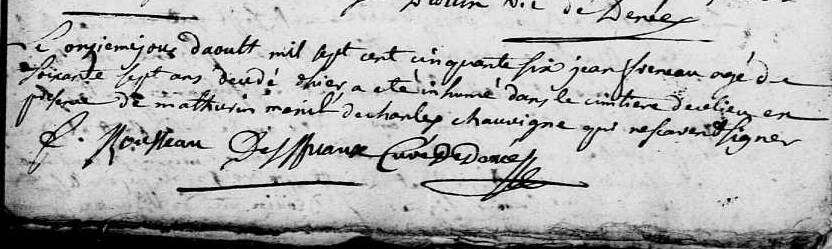 vic de Denée
Le onziemejour daoult mil sept cent cinquante six jean agé de
soixante sept ans decedé d'hier a eté inhumé dans le cimitiere de celieu en
presence de mathurin de charles chauvigne qui nescavent signer
f. Rousseau Curé de denée